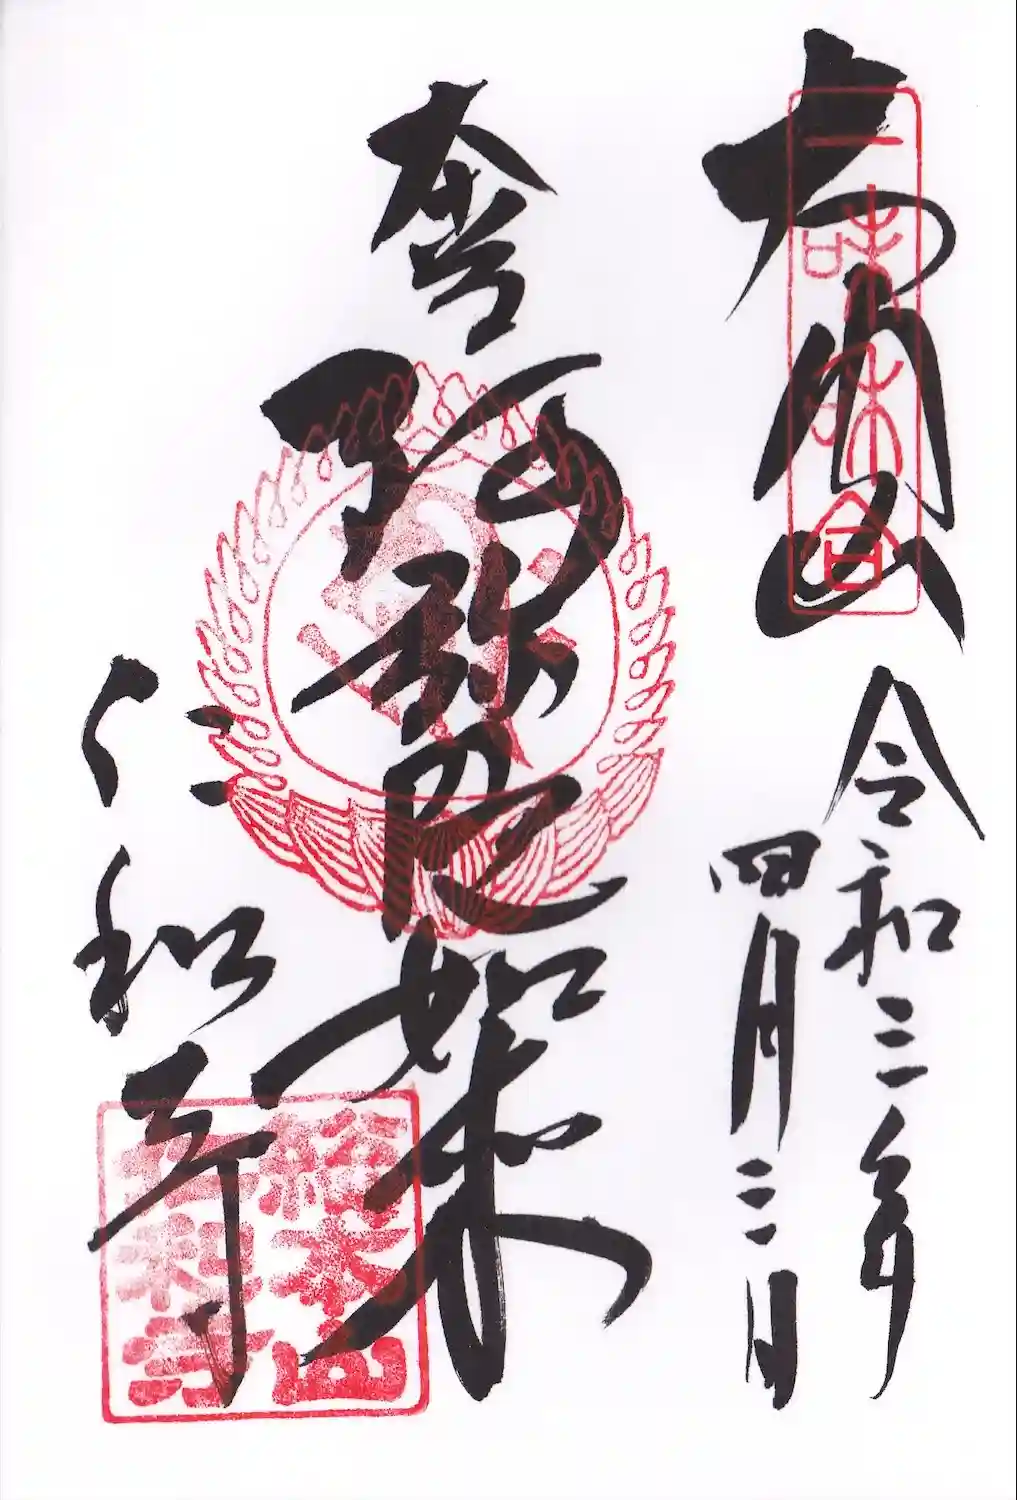 大内山
一味和合
令和三年
四月三日
奉
阿弥陀如来
仁和寺
総本山
仁和寺